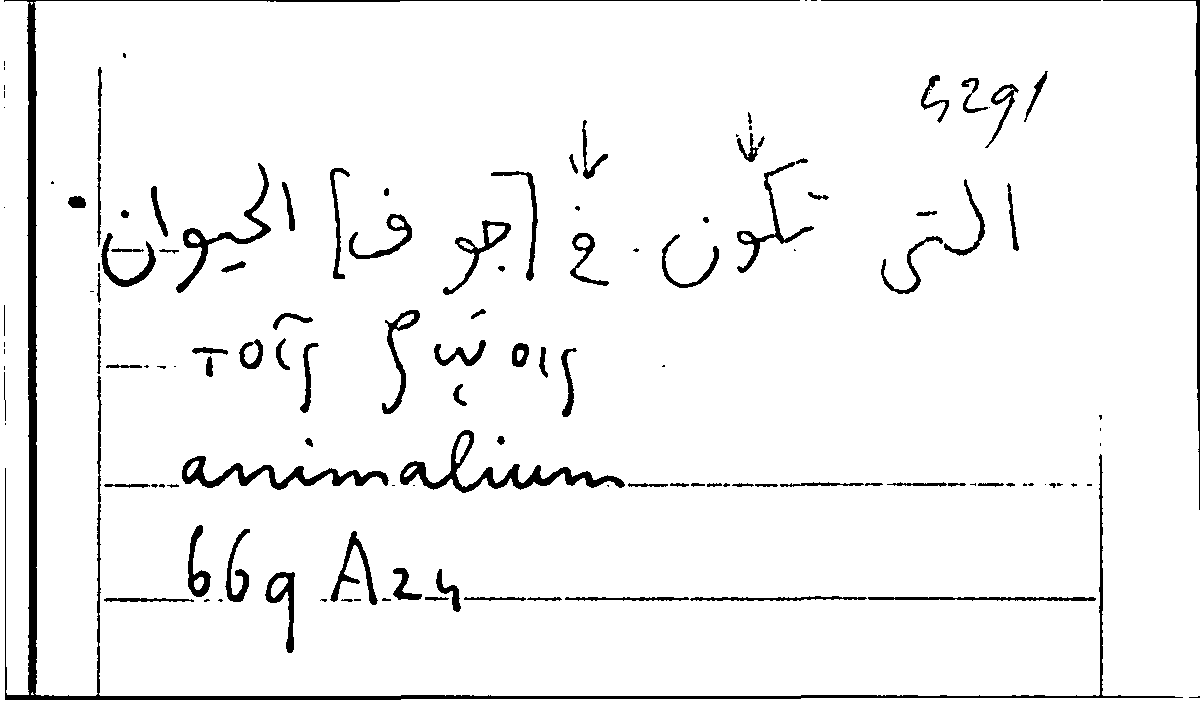 4291
التى تكون فى [جوف] الحيوان
τοῖς ζῴοις
animalium
669 A24